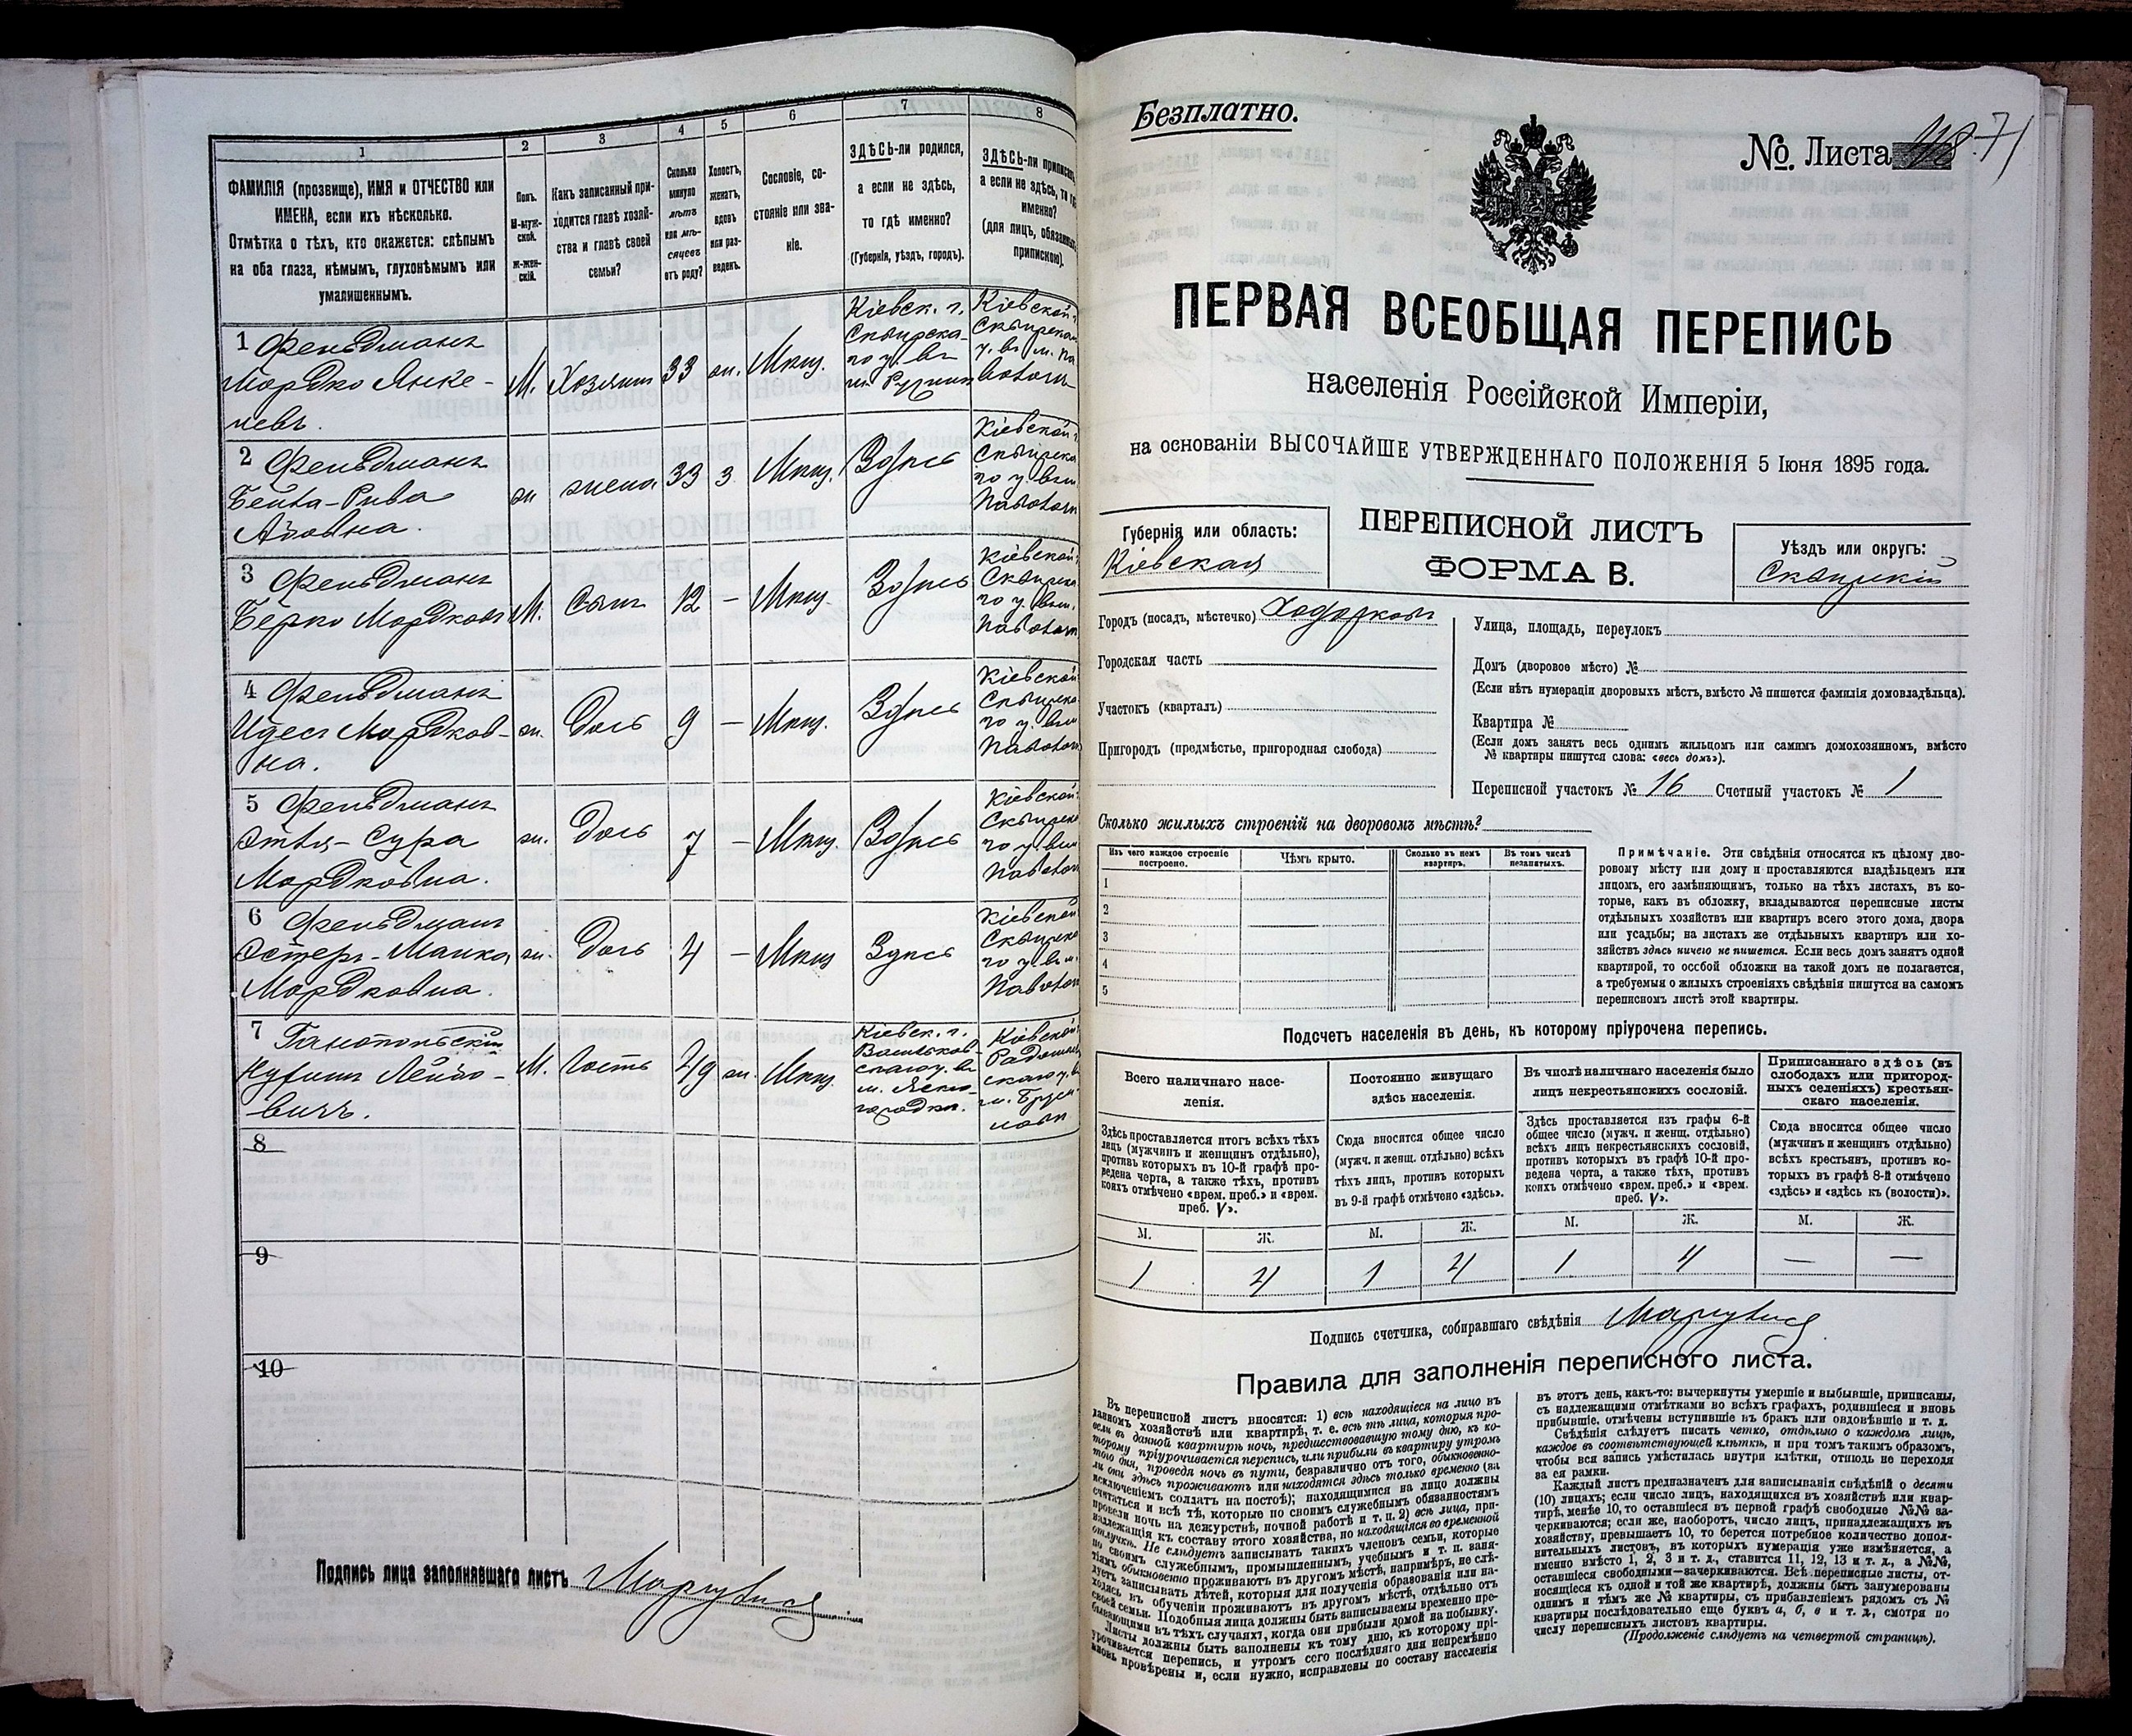 1
2
3
4
5
6
7
8
ФАМИЛІЯ (прозвище), ИМЯ и ОТЧЕСТВО или
ИМЕНА, если ихъ нѣсколько.
Отмѣтка о тѣхъ, кто окажется: слѣпымъ
на оба глаза, нѣмымъ, глухонѣмымъ или
умалишеннымъ.
Полъ.
М-муж-
ской.
ж-жен-
скій.
Какъ записанный при-
ходится главѣ хозяй-
ства и главѣ своей
семьи?
Сколько
минуло
лѣтъ
или мѣ-
сяцевъ
отъ роду?
Холостъ,
женатъ,
вдовъ
или раз-
веденъ.
Сословіе, со-
стояніе или зва-
ніе.
ЗДѢСЬ-ли родился,
а если не здѣсь,
то гдѣ именно?
(Губернія, уѣздъ, городъ).
ЗДѢСЬ-ли приписанъ,
а если не здѣсь, то гдѣ
именно?
(для лицъ, обязанныхъ
припискою).
1 Фельдманъ
Мордко Янке-
левъ.
М. Хозяинъ 33 жн. Мѣщ.
Кіевск. г.
Сквирска-
го у. въ
м. Ружинѣ
Кіевской г.
Сквирска
у. въ м. Па
волочи
2 Фельдманъ
Бейла-Рива
Аговна.
ж жена 33 з Мѣщ. Здѣсь
Кіевской г
Сквирска
го у. въ м
Паволочи
3 Фельдманъ
Берко Мордковъ
М. Сынъ 12 — Мѣщ. Здѣсь
Кіевской
Сквирска
го у. въ м.
Паволочи
4 Фельдманъ
Идесъ Мордков-
на.
ж. Дочь 9 — Мѣщ. Здѣсь
Кіевской
Сквирска
го у. въ м
Паволочи
5 Фельдманъ
Этля-Сура
Мордковна.
ж. Дочь 7 — Мѣщ. Здѣсь
Кіевской
Сквирска
го у. въ м
Паволочи
6 Фельдманъ
Эстеръ-Малка
Мордковна.
ж. Дочь 4 — Мѣщ Здѣсь
Кіевской
Сквирска
го у. въ м.
Паволочи
7 Ганопольскій
Нухимъ Лейбо-
вичъ.
М. Гость 49 жн. Мѣщ.
Кіевск. г.
Васильков-
скаго у. въ
м. Ясно-
городкѣ.
Кіевской
Радомысль
скаго у. въ
м. Бруси-
ловѣ
8
9
10
Подпись лица заполнявшаго листъ
Безплатно.
№. Листа 71
ПЕРВАЯ ВСЕОБЩАЯ ПЕРЕПИСЬ
населенія Россійской Имперіи,
на основаніи ВЫСОЧАЙШЕ УТВЕРЖДЕННАГО ПОЛОЖЕНІЯ 5 Іюня 1895 года.
Губернія или область:
Кіевская
ПЕРЕПИСНОЙ ЛИСТЪ
ФОРМА В.
Уѣздъ или округъ:
Сквирскій
Городъ (посадъ, мѣстечко) Ходорковъ
Городская часть
Участокъ (кварталъ)
Пригородъ (предмѣстье, пригородная слобода)
Улица, площадь, переулокъ
Домъ (дворовое мѣсто) №
(Если нѣтъ нумераціи дворовыхъ мѣстъ, вмѣсто № пишется фамилія домовладѣльца).
Квартира №
(Если домъ занятъ весь однимъ жильцомъ или самимъ домохозяиномъ, вмѣсто
№ квартиры пишутся слова: «весь домъ»).
Переписной участокъ № 16 Счетный участокъ № 1
Сколько жилыхъ строеній на дворовомъ мѣстѣ?
Изъ чего каждое строеніе
построено.
Чѣмъ крыто.
Сколько въ немъ
квартиръ.
Въ томъ числѣ
незанятыхъ.
1
2
3
4
5
Примѣчаніе. Эти свѣдѣнія относятся къ цѣлому дво-
ровому мѣсту или дому и проставляются владѣльцемъ или
лицомъ, его замѣняющимъ, только на тѣхъ листахъ, въ ко-
торые, какъ въ обложку, вкладываются переписные листы
отдѣльныхъ хозяйствъ или квартиръ всего этого дома, двора
или усадьбы; на листахъ же отдѣльныхъ квартиръ или хо-
зяйствъ здѣсь ничего не пишется. Если весь домъ занятъ одной
квартирой, то особой обложки на такой домъ не полагается,
а требуемыя о жилыхъ строеніяхъ свѣдѣнія пишутся на самомъ
переписномъ листѣ этой квартиры.
Подсчетъ населенія въ день, къ которому пріурочена перепись.
Всего наличнаго насе-
ленія.
Постоянно живущаго
здѣсь населенія.
Въ числѣ наличнаго населенія было
лицъ некрестьянскихъ сословій.
Приписаннаго здѣсь (въ
слободахъ или пригород-
ныхъ селеніяхъ) крестьян-
скаго населенія.
Здѣсь проставляется итогъ всѣхъ тѣхъ
лицъ (мужчинъ и женщинъ отдѣльно),
противъ которыхъ въ 10-й графѣ про-
ведена черта, а также тѣхъ, противъ
коихъ отмѣчено «врем. преб.» и «врем.
преб. V».
Сюда вносится общее число
(мужч. и женщ. отдѣльно) всѣхъ
тѣхъ лицъ, противъ которыхъ
въ 9-й графѣ отмѣчено «здѣсь».
Здѣсь проставляется изъ графы 6-й
общее число (мужч. и женщ. отдѣльно)
всѣхъ лицъ некрестьянскихъ сословій,
противъ которыхъ въ графѣ 10-й про-
ведена черта, а также тѣхъ, противъ
коихъ отмѣчено «врем. преб.» и «врем.
преб. V».
Сюда вносится общее число
(мужчинъ и женщинъ отдѣльно)
всѣхъ крестьянъ, противъ ко-
торыхъ въ графѣ 8-й отмѣчено
«здѣсь» и «здѣсь къ (волости)».
М. Ж. М. Ж. М. Ж. М. Ж.
1 4 1 4 1 4 — —
Подпись счетчика, собиравшаго свѣдѣнія
Правила для заполненія переписного листа.
Въ переписной листъ вносятся: 1) всѣ находящіеся на лицо въ
данномъ хозяйствѣ или квартирѣ, т. е. всѣ тѣ лица, которыя про-
вели въ данной квартирѣ ночь, предшествовавшую тому дню, къ ко-
торому пріурочивается перепись, или прибыли въ квартиру утромъ
того дня, проведя ночь въ пути, безразлично отъ того, обыкновенно-
ли они здѣсь проживаютъ или находятся здѣсь только временно (за
исключеніемъ солдатъ на постоѣ); находящимися на лицо должны
считаться и всѣ тѣ, которые по своимъ служебнымъ обязанностямъ
провели ночь на дежурствѣ, ночной работѣ и т. п. 2) всѣ лица, при-
надлежащія къ составу этого хозяйства, но находящіяся во временной
отлучкѣ. Не слѣдуетъ записывать такихъ членовъ семьи, которые
по своимъ служебнымъ, промышленнымъ, учебнымъ и т. п. заня-
тіямъ обыкновенно проживаютъ въ другомъ мѣстѣ, напримѣръ, не слѣ-
дуетъ записывать дѣтей, которыя для полученія образованія или на-
ходясь въ обученіи проживаютъ въ другомъ мѣстѣ, отдѣльно отъ
своей семьи. Подобныя лица должны быть записываемы временно пре-
бывающими въ тѣхъ случаяхъ, когда они прибыли домой на побывку.
Листы должны быть заполнены къ тому дню, къ которому прі-
урочивается перепись, и утромъ сего послѣдняго дня непремѣнно
вновь провѣрены и, если нужно, исправлены по составу населенія
въ этотъ день, какъ-то: вычеркнуты умершіе и выбывшіе, приписаны,
съ надлежащими отмѣтками во всѣхъ графахъ, родившіеся и вновь
прибывшіе, отмѣчены вступившіе въ бракъ или овдовѣвшіе и т. д.
Свѣдѣнія слѣдуетъ писать четко, отдѣльно о каждомъ лицѣ,
каждое въ соотвѣтствующей клѣткѣ, и при томъ такимъ образомъ,
чтобы вся запись умѣстилась внутри клѣтки, отнюдь не переходя
за ея рамки.
Каждый листъ предназначенъ для записыванія свѣдѣній о десяти
(10) лицахъ; если число лицъ, находящихся въ хозяйствѣ или квар-
тирѣ, менѣе 10, то оставшіеся въ первой графѣ свободные №№ за-
черкиваются; если же, наоборотъ, число лицъ, принадлежащихъ къ
хозяйству, превышаетъ 10, то берется потребное количество допол-
нительныхъ листовъ, въ которыхъ нумерація уже измѣняется, а
именно вмѣсто 1, 2, 3 и т. д., ставится 11, 12, 13 и т. д., а №№,
оставшіеся свободными—зачеркиваются. Всѣ переписные листы, от-
носящіеся къ одной и той же квартирѣ, должны быть занумерованы
однимъ и тѣмъ же № квартиры, съ прибавленіемъ рядомъ съ №
квартиры послѣдовательно еще буквъ а, б, в и т. д., смотря по
числу переписныхъ листовъ квартиры.
(Продолженіе слѣдуетъ на четвертой страницѣ).